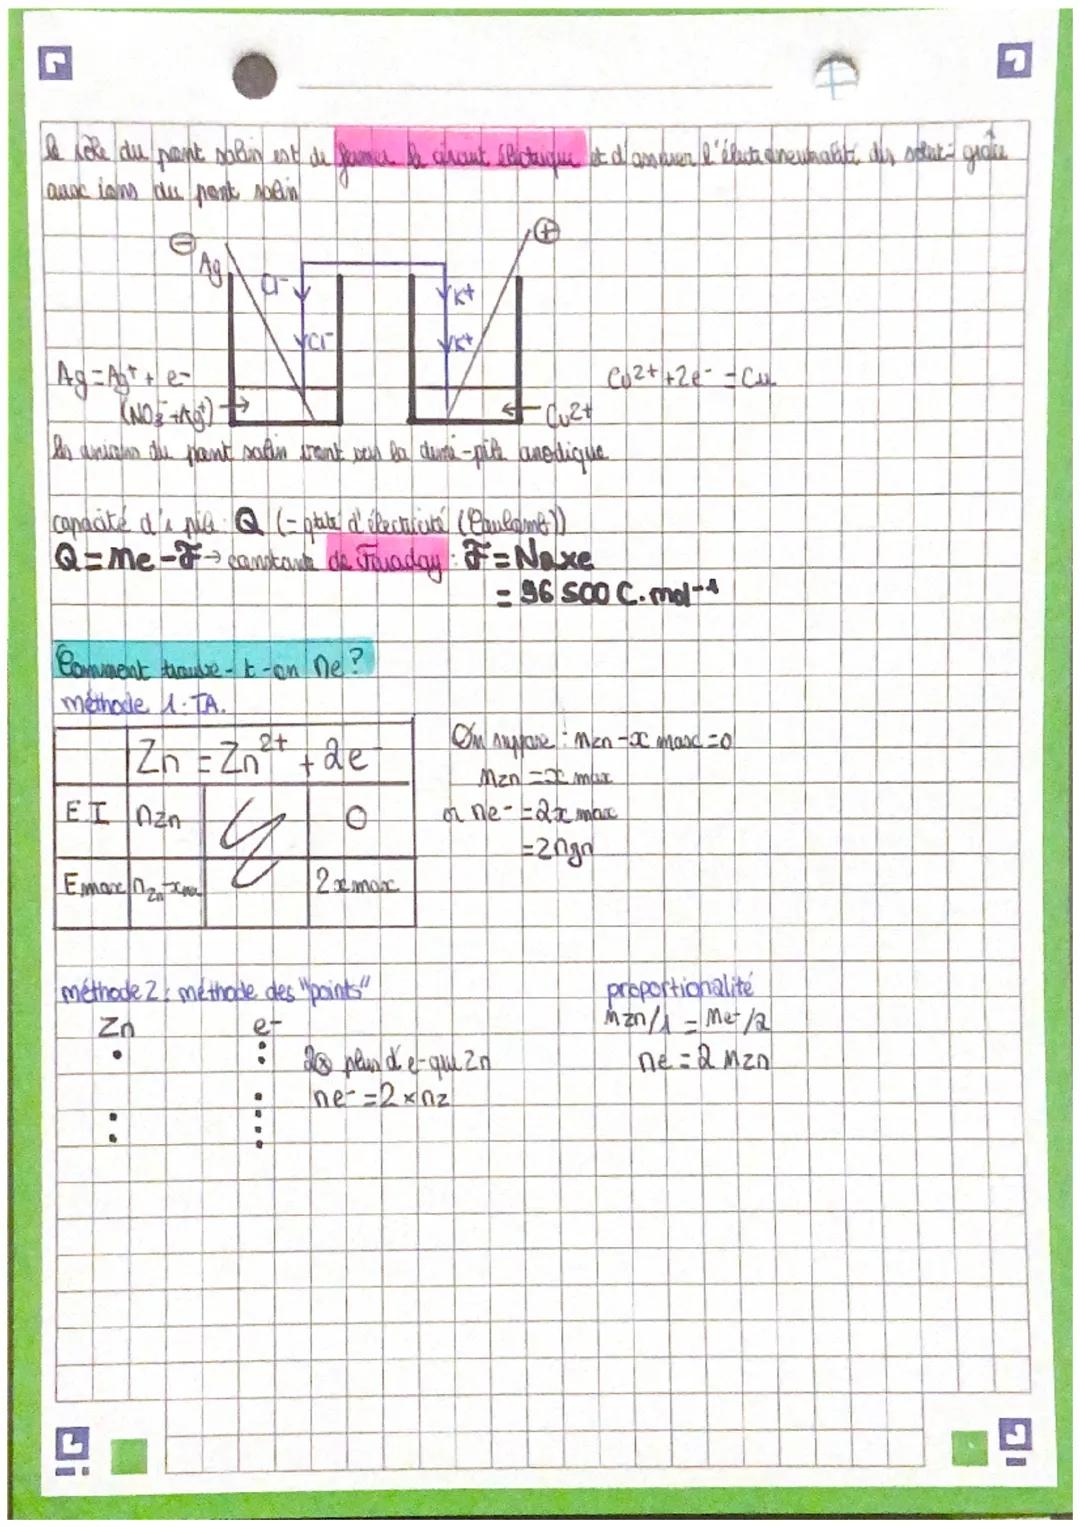 le rôle du pont salin est de fermer le circuit électrique et d'assurer l'électroneutralité des solut° grâce
aux ions du pont salin
⊖ ⊕
Ag Cl⁻ K⁺
Cl⁻ K⁺
Ag = Ag⁺ + e⁻ Cu²⁺ + 2e⁻ = Cu
(NO₃⁻ + Ag⁺) → ← Cu²⁺
les anions du pont salin vont vers la demi-pile anodique
capacité d'1 pile : Q (= qtité d'électricité (Coulomb))
Q = ne - F → constante de Faraday : F = Na x e
= 96 500 C.mol⁻¹
Comment trouve-t-on ne ?
méthode 1 : TA.
Zn = Zn²⁺ + 2e⁻
E.I nzn 0
Emax nzn-xmax 2xmax
On suppose : nzn - x max = 0
nzn = x max
or ne⁻ = 2x max
= 2n
méthode 2 : méthode des "points"
Zn e⁻
2⊗ plus d'e⁻ que Zn
ne⁻ = 2 × nz
proportionalité
nzn/1 = ne⁻/2
ne = 2 nzn